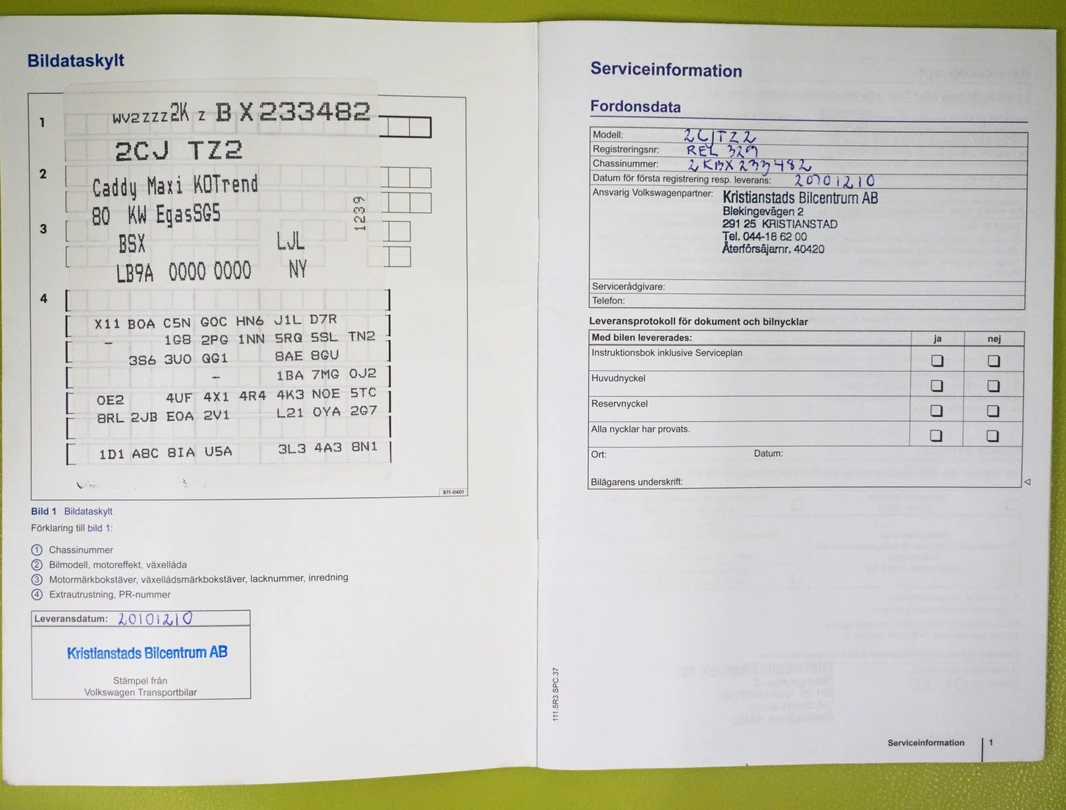 Bildataskylt
1
WV2ZZZ2K Z BX233482
2CJ TZ2
2
Caddy Maxi KOTrend
80 KW EgasSG5
1239
3
BSX LJL
LB9A 0000 0000 NY
4
X11 BOA C5N GOC HN6 J1L D7R
- 1G8 2PG 1NN 5RQ 5SL TN2
3S6 3U0 QG1 8AE 8GU
- 1BA 7MG OJ2
OE2 4UF 4X1 4R4 4K3 NOE 5TC
8RL 2JB EOA 2V1 L21 OYA 2G7
1D1 A8C 8IA U5A 3L3 4A3 8N1
B1T-0401
Bild 1 Bildataskylt
Förklaring till bild 1:
1 Chassinummer
2 Bilmodell, motoreffekt, växellåda
3 Motormärkbokstäver, växellådsmärkbokstäver, lacknummer, inredning
4 Extrautrustning, PR-nummer
Leveransdatum: 20101210
Kristianstads Bilcentrum AB
Stämpel från
Volkswagen Transportbilar
Serviceinformation
Fordonsdata
Modell: 2CJTZ2
Registreringsnr: REL 329
Chassinummer: 2KBX233482
Datum för första registrering resp. leverans: 20101210
Ansvarig Volkswagenpartner: Kristianstads Bilcentrum AB
Blekingevägen 2
291 25 KRISTIANSTAD
Tel. 044-18 62 00
Återförsäjarnr. 40420
Servicerådgivare:
Telefon:
Leveransprotokoll för dokument och bilnycklar
Med bilen levererades: ja nej
Instruktionsbok inklusive Serviceplan
Huvudnyckel
Reservnyckel
Alla nycklar har provats.
Ort: Datum:
Bilägarens underskrift:
111.5R3.SPC.37
Serviceinformation 1